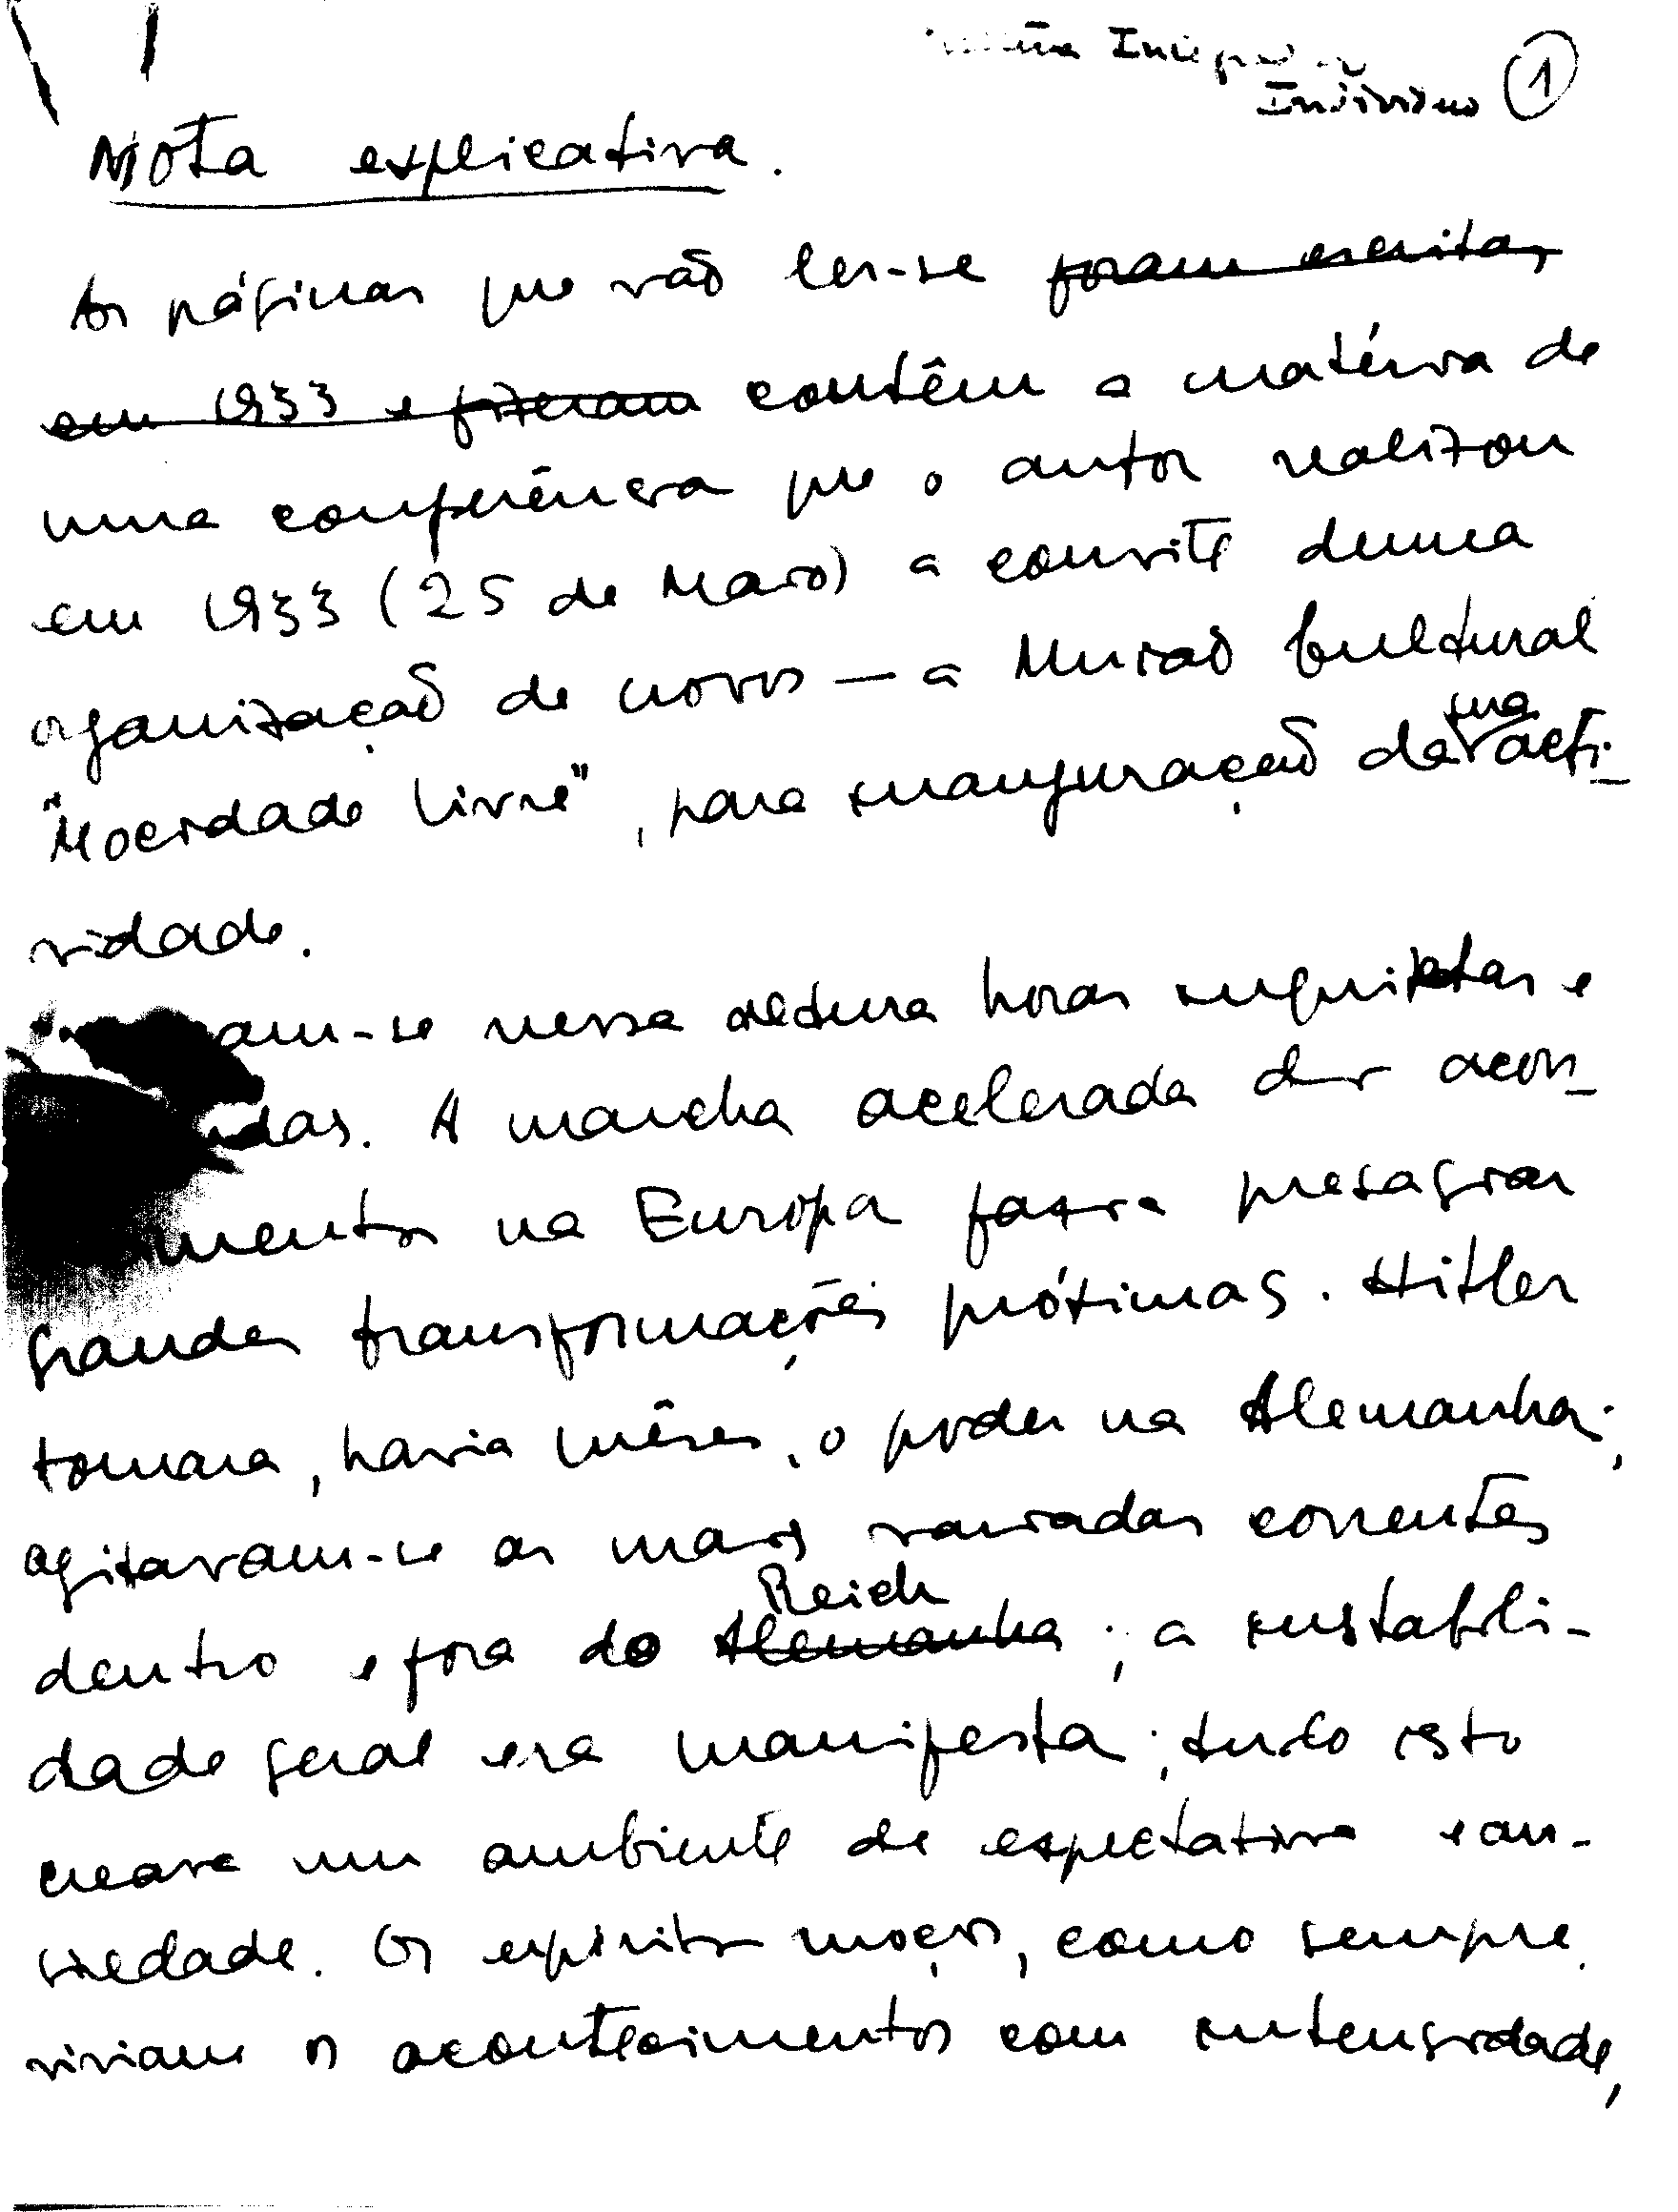 Indivíduo 1
Nota explicativa.
As páginas que vão ler-se foram escritas
em 1933 e fizeram contêm a matéria de
uma conferência que o autor realizou
em 1933 (25 de Maio) a convite duma
organização de novos — a União Cultural
"Mocidade Livre", para inauguração da sua acti-
vidade.
am-se nessa altura horas inquietas e
das. A marcha acelerada dos acon-
mentos na Europa fazia presagiar
grandes transformações próximas. Hitler
tomara, havia mêses, o poder na Alemanha;
agitavam-se as mais variadas correntes
dentro e fora do Alemanha Reich; a instabili-
dade geral era manifesta; tudo isto
creava um ambiente de espectativa e an-
siedade. Os espíritos moços, como sempre,
viviam os acontecimentos com intensidade,